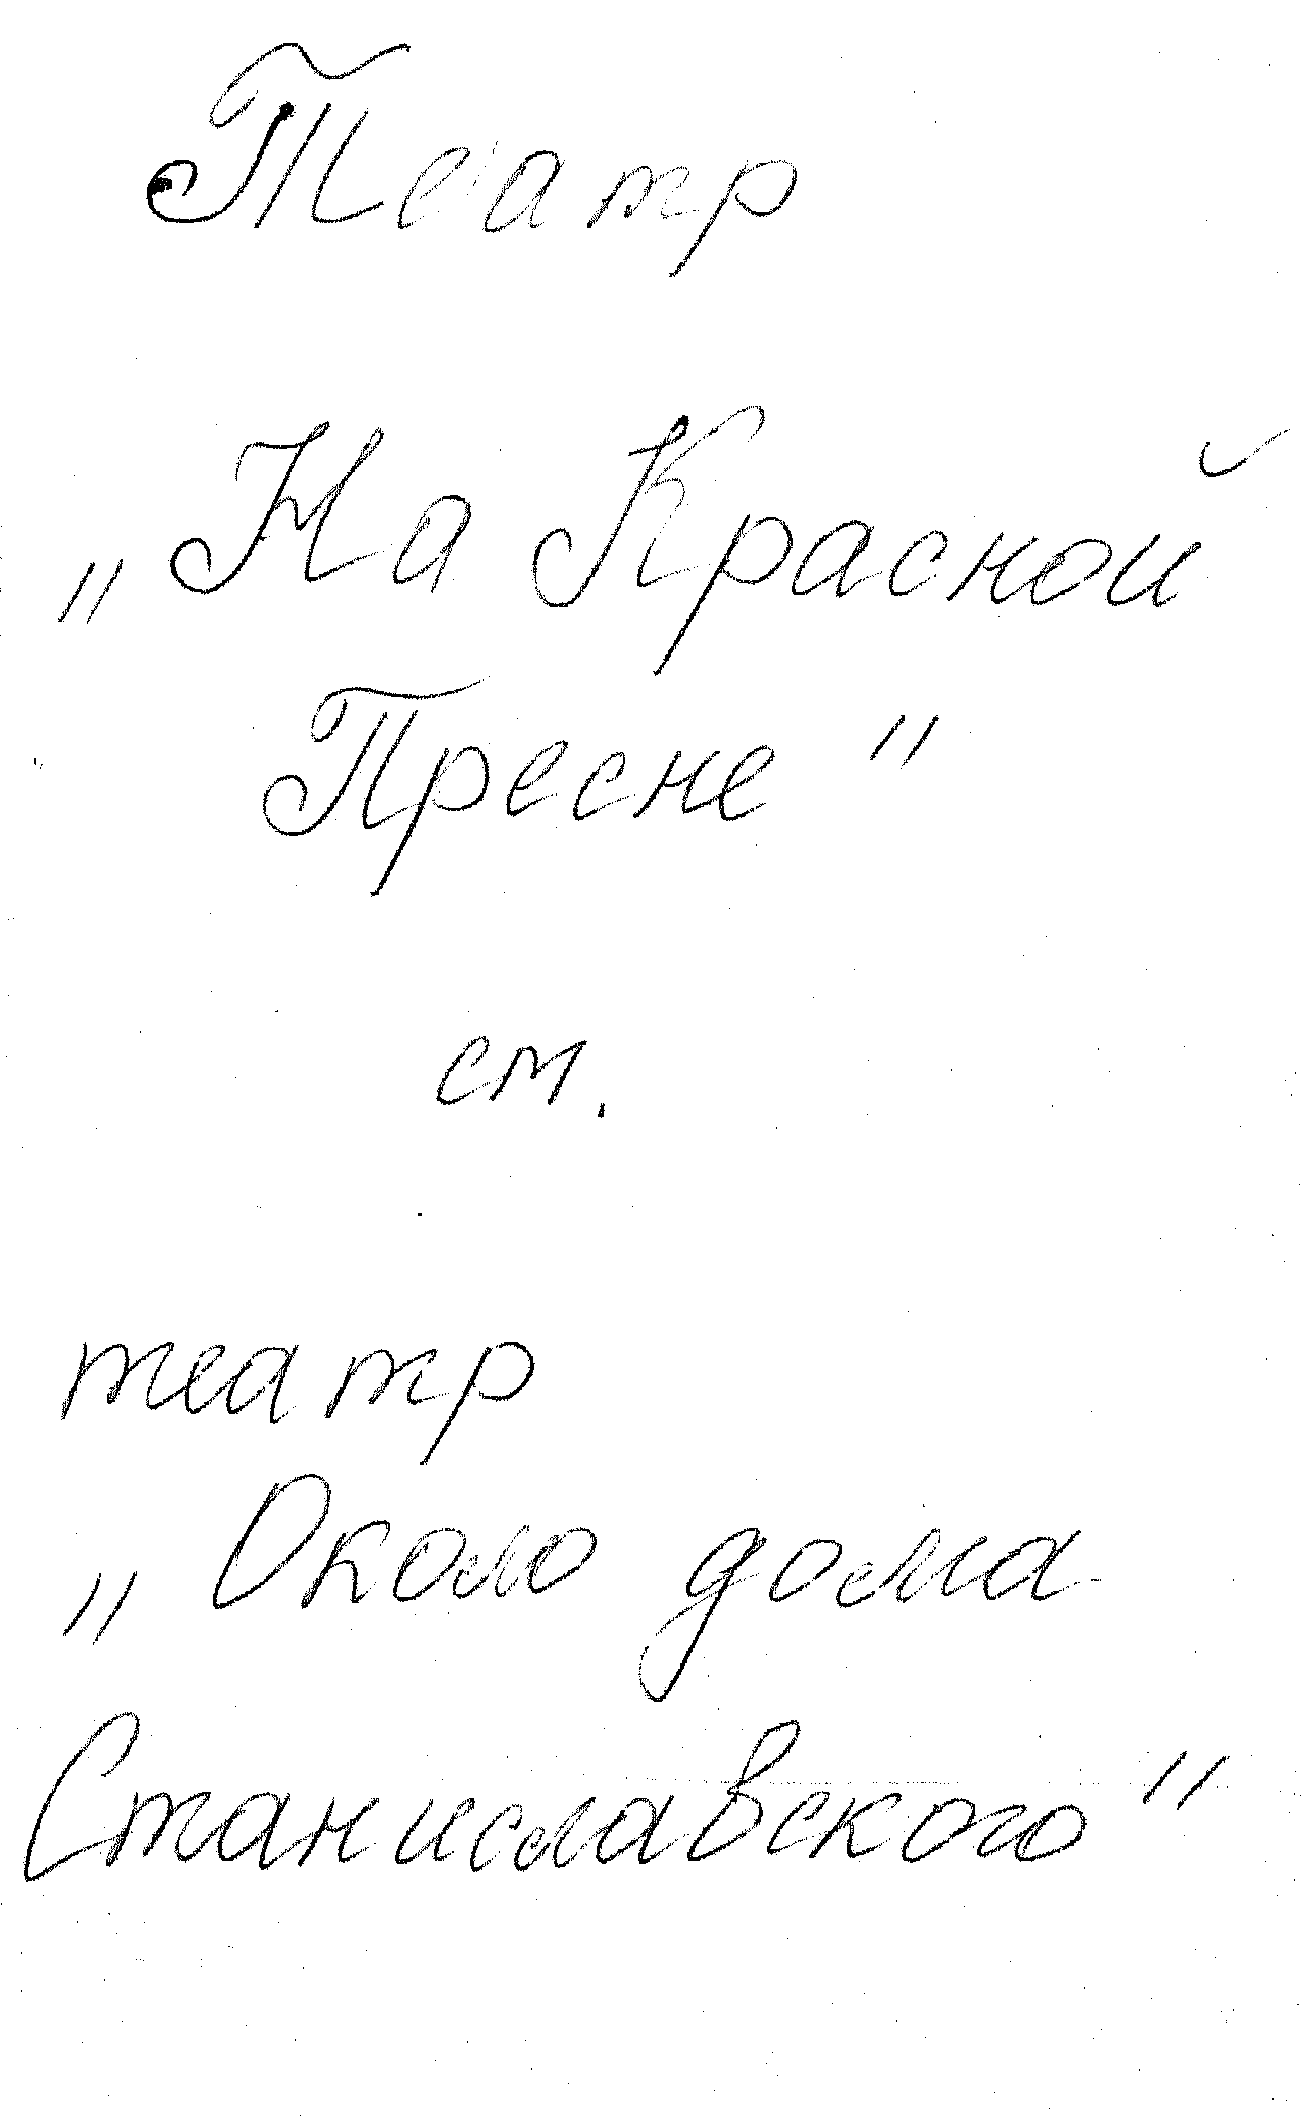 Театр
„На Красной
Пресне"
см.
театр
„Около дома
Станиславского"